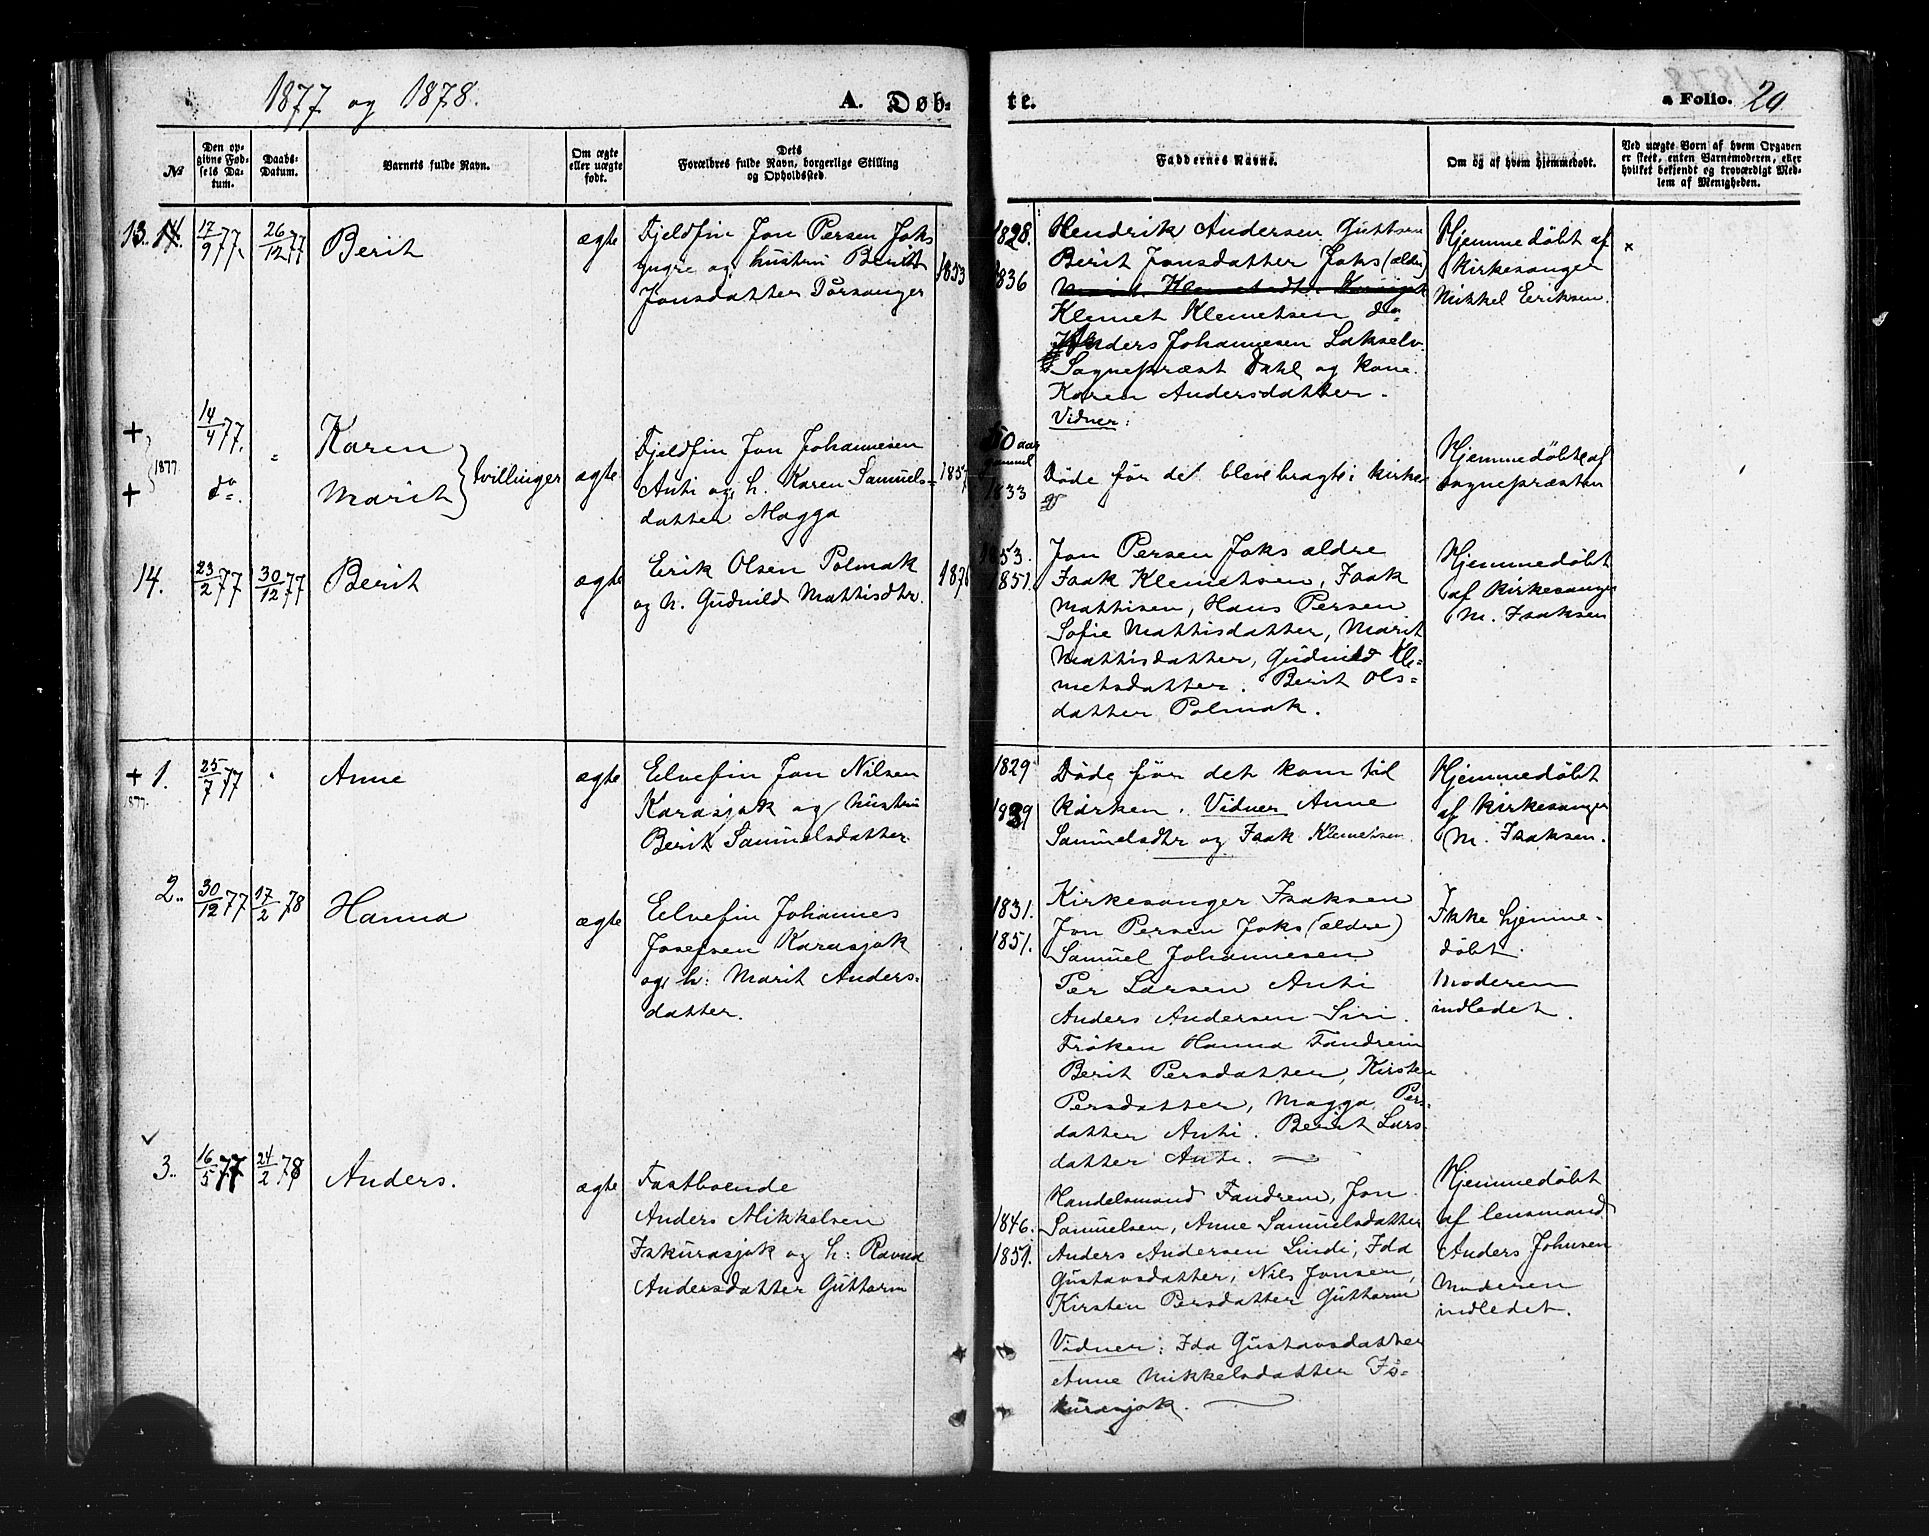 1877 og 1878.
A. Døb-
te.
a Folio. 20
No
Den op-
givne Fød-
sels Da-
tum.
Daabs-
Datum.
Barnets fulde Navn.
Om ægte
eller uægte
født.
Dets
Forældres fulde Navn, borgerlige Stilling
og Opholdssted.
Faddernes Navne.
Om og af hvem hjemmedøbt.
Ved uægte Børn af hvem Opgaven
er skeet, enten Barnemoderen, eller
hvilket bekjendt og troværdigt Med-
lem af Menigheden.
13. 14.
17/9 77.
26/12 77
Berit
ægte
Fjeldfin Jon Persen Joks
yngre og hustru Berit
Jonsdatter Porsanger
1853
1828.
1836
Hendrik Andersen Guttorm
Berit Jonsdatter Joks (ældre)
Klemet Klemetsen do
Anders Johannesen Lakselv.
Sognepræst Dahl og kone
Karen Andersdatter.
Vidner:
Hjemmedøbt af
Kirkesanger
Mikkel Eriksen.
×
+
+
1877
14/4 77.
do.
Karen
Marit
tvillinger
ægte
Fjeldfin Jon Johannesen
Anti og h. Karen Samuels-
datter Magga
1857
50 aar
gammel
1833
Døde før det bleve bragte i kirke
Hjemmedøbte af
sognepræsten
14.
23/2 77
30/12 77
Berit
ægte
Erik Olsen Polmak
og h. Gudnild Mattisdtr.
1876
1853.
1851.
Jon Persen Joks ældre
Isak Klemetsen, Isak
Mattisen, Hans Persen
Sofie Mattisdatter, Marit
Mattisdatter, Gudnild Kle-
metsdatter. Berit Ols-
datter Polmak.
Hjemmedøbt
af Kirkesanger
M. Isaksen
+ 1.
1877.
25/7 77
Anne
ægte
Elvefin Jon Nilsen
Karasjok og hustru
Berit Samuelsdatter
1829
1839
Døde før det kom til
Kirken. Vidner Anne
Samuelsdtr og Isak Klemetsen
Hjemmedøbt
af Kirkesanger
M. Isaksen.
2.
30/12 77
17/2 78
Hanna
ægte
Elvefin Johannes
Josefsen Karasjok
og h: Marit Anders-
datter.
1831.
1851.
Kirkesanger Isaksen
Jon Persen Joks (ældre)
Samuel Johannesen
Per Larsen Anti
Anders Andersen Siri.
Frøken Hanna Fandrem
Berit Persdatter, Kirsten
Persdatter, Magga Pers-
datter Anti. Berit Lars-
datter Anti.
Ikke hjemme-
døbt.
Moderen
indledet.
3.
16/5 77
24/2 78
Anders.
ægte
Fastboende
Anders Mikkelsen
Iskurasjok og h: Ravna
Andersdatter Guttorm
1846.
1851.
Handelsmand Fandrem, Jon
Samuelsen, Anne Samuelsdatter
Anders Andersen Lindi, Ida
Gustavsdatter, Nils Jonsen,
Kirsten Persdatter Guttorm
Vidner: Ida Gustavsdatter
Anne Mikkelsdatter Is-
kurasjok.
Hjemmedøbt
af lensmand
Anders Johnsen
Moderen
indledet.